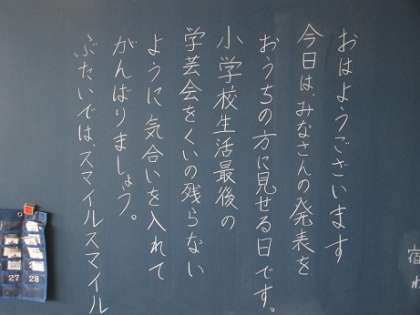 おはようございます
今日は、みなさんの発表を
おうちの方に見せる日です。
小学校生活最後の
学芸会をくいの残らない
ように気合いを入れて
がんばりましょう。
ぶたいでは、スマイルスマイル
宿
27 28